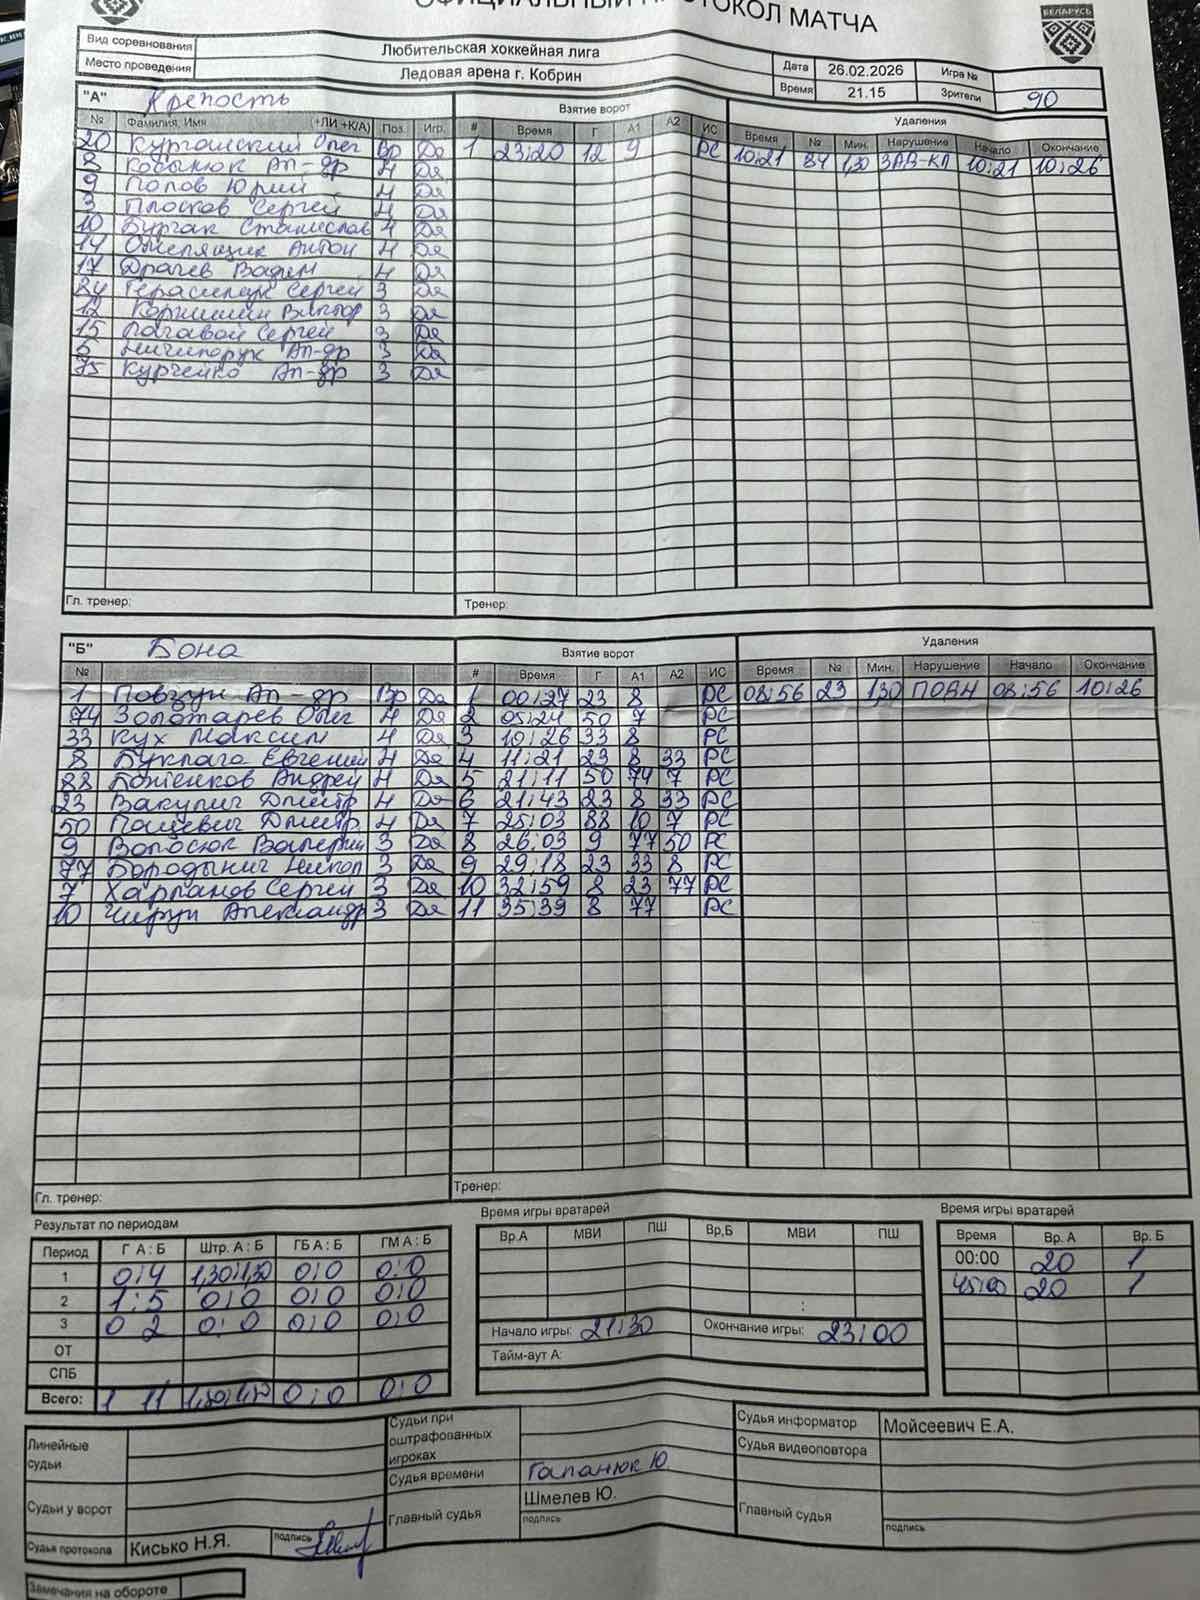 ОФИЦИАЛЬНЫЙ ПРОТОКОЛ МАТЧА
БЕЛАРУСЬ
Вид соревнования Любительская хоккейная лига Дата 26.02.2026 Игра №
Место проведения Ледовая арена г. Кобрин Время 21.15 Зрители 90
"А" Крепость Взятие ворот Удаления
№ Фамилия, Имя (+ЛИ +К/А) Поз. Игр. # Время Г А1 А2 ИС Время № Мин. Нарушение Начало Окончание
20 Олег Вр Да 1 23:20 12 9 РС 10:21 84 1,30 ЗАД-КЛ 10:21 10:26
8 Косынюк Ал-др Ч Да
9 Попов Юрий Ч Да
3 Плосков Сергей Ч Да
10 Бурчак Станислав Ч Да
14 Омелящик Антон Ч Да
17 Драчев Вадим Ч Да
84 Герасимук Сергей З Да
12 Коржишин Виктор З Да
15 Лагавой Сергей З Да
5 Ничипорук Ал-др З Да
75 Курченко Ал-др З Да
Гл. тренер: Тренер:
"Б" Бона Взятие ворот Удаления
№ # Время Г А1 А2 ИС Время № Мин. Нарушение Начало Окончание
1 Повзун Ал-др Вр Да 1 00:27 23 8 РС 08:56 23 1,30 ПОДН 08:56 10:26
74 Золотарев Олег Ч Да 2 05:24 50 7 РС
33 Кух Максим Ч Да 3 10:26 33 8 РС
8 Буклага Евгений Ч Да 4 11:21 23 8 33 РС
88 Боженков Андрей Ч Да 5 21:11 50 74 7 РС
23 Вакулич Дмитр Ч Да 6 21:43 23 8 33 РС
50 Пацевич Дмитр Ч Да 7 25:03 88 10 7 РС
9 Волосюк Валерий З Да 8 26:03 9 77 50 РС
77 Бородынич Никол З Да 9 29:18 23 33 8 РС
7 Харланов Сергей З Да 10 32:59 8 23 77 РС
10 Чирун Александр З Да 11 35:39 8 77 РС
Гл. тренер: Тренер:
Результат по периодам Время игры вратарей Время игры вратарей
Период Г А : Б Штр. А : Б ГБ А : Б ГМ А : Б Вр.А МВИ ПШ Вр,Б МВИ ПШ Время Вр. А Вр. Б
1 0:4 1,30:1,30 0:0 0:0 00:00 20 1
2 1:5 0:0 0:0 0:0 : 45:00 20 1
3 0 2 0:0 0:0 0:0 Начало игры: 21:30 Окончание игры: 23:00
ОТ Тайм-аут А:
СПБ
Всего: 1 11 1,30:1,30 0:0 0:0
Линейные судьи Судьи при оштрафованных игроках Судья информатор Мойсеевич Е.А.
Судья видеоповтора
Судья времени Гапанюк Ю
Судьи у ворот Главный судья Шмелев Ю. Главный судья
подпись подпись
Судья протокола Кисько Н.Я. подпись
Замечания на обороте